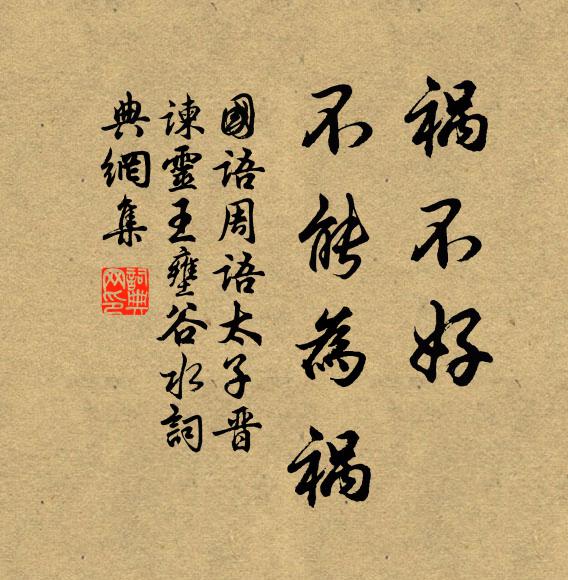 禍不好
不能為禍
國語周語太子晋
諫靈王壅谷水詞
典網集
詞典网印